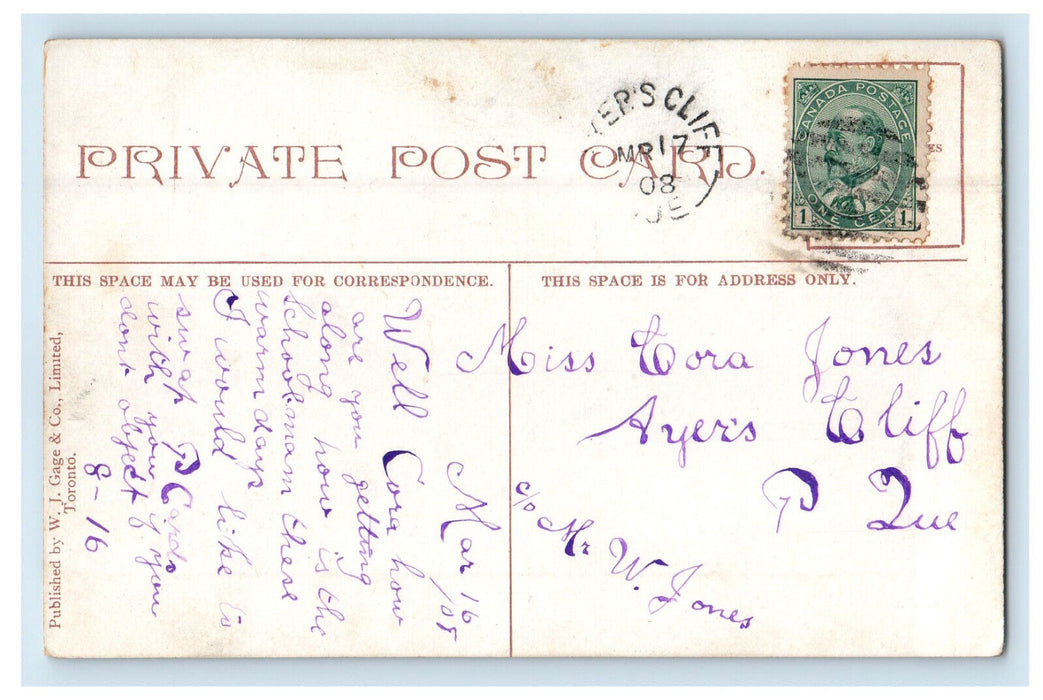 PRIVATE POST CARD.
YER'S CLIFF
MR 17
08
QUE
CANADA POSTAGE
1 ONE CENT 1
THIS SPACE MAY BE USED FOR CORRESPONDENCE.
THIS SPACE IS FOR ADDRESS ONLY.
Mar 16
/08
Well Cora how
are you getting
along how is the
School mam these
warm days
I would like to
swap P Cards
with you if you
dont object
8-16
Miss Cora Jones
Ayer's Cliff
P Que
c/o Mr W. Jones
Published by W. J. Gage & Co., Limited,
Toronto.